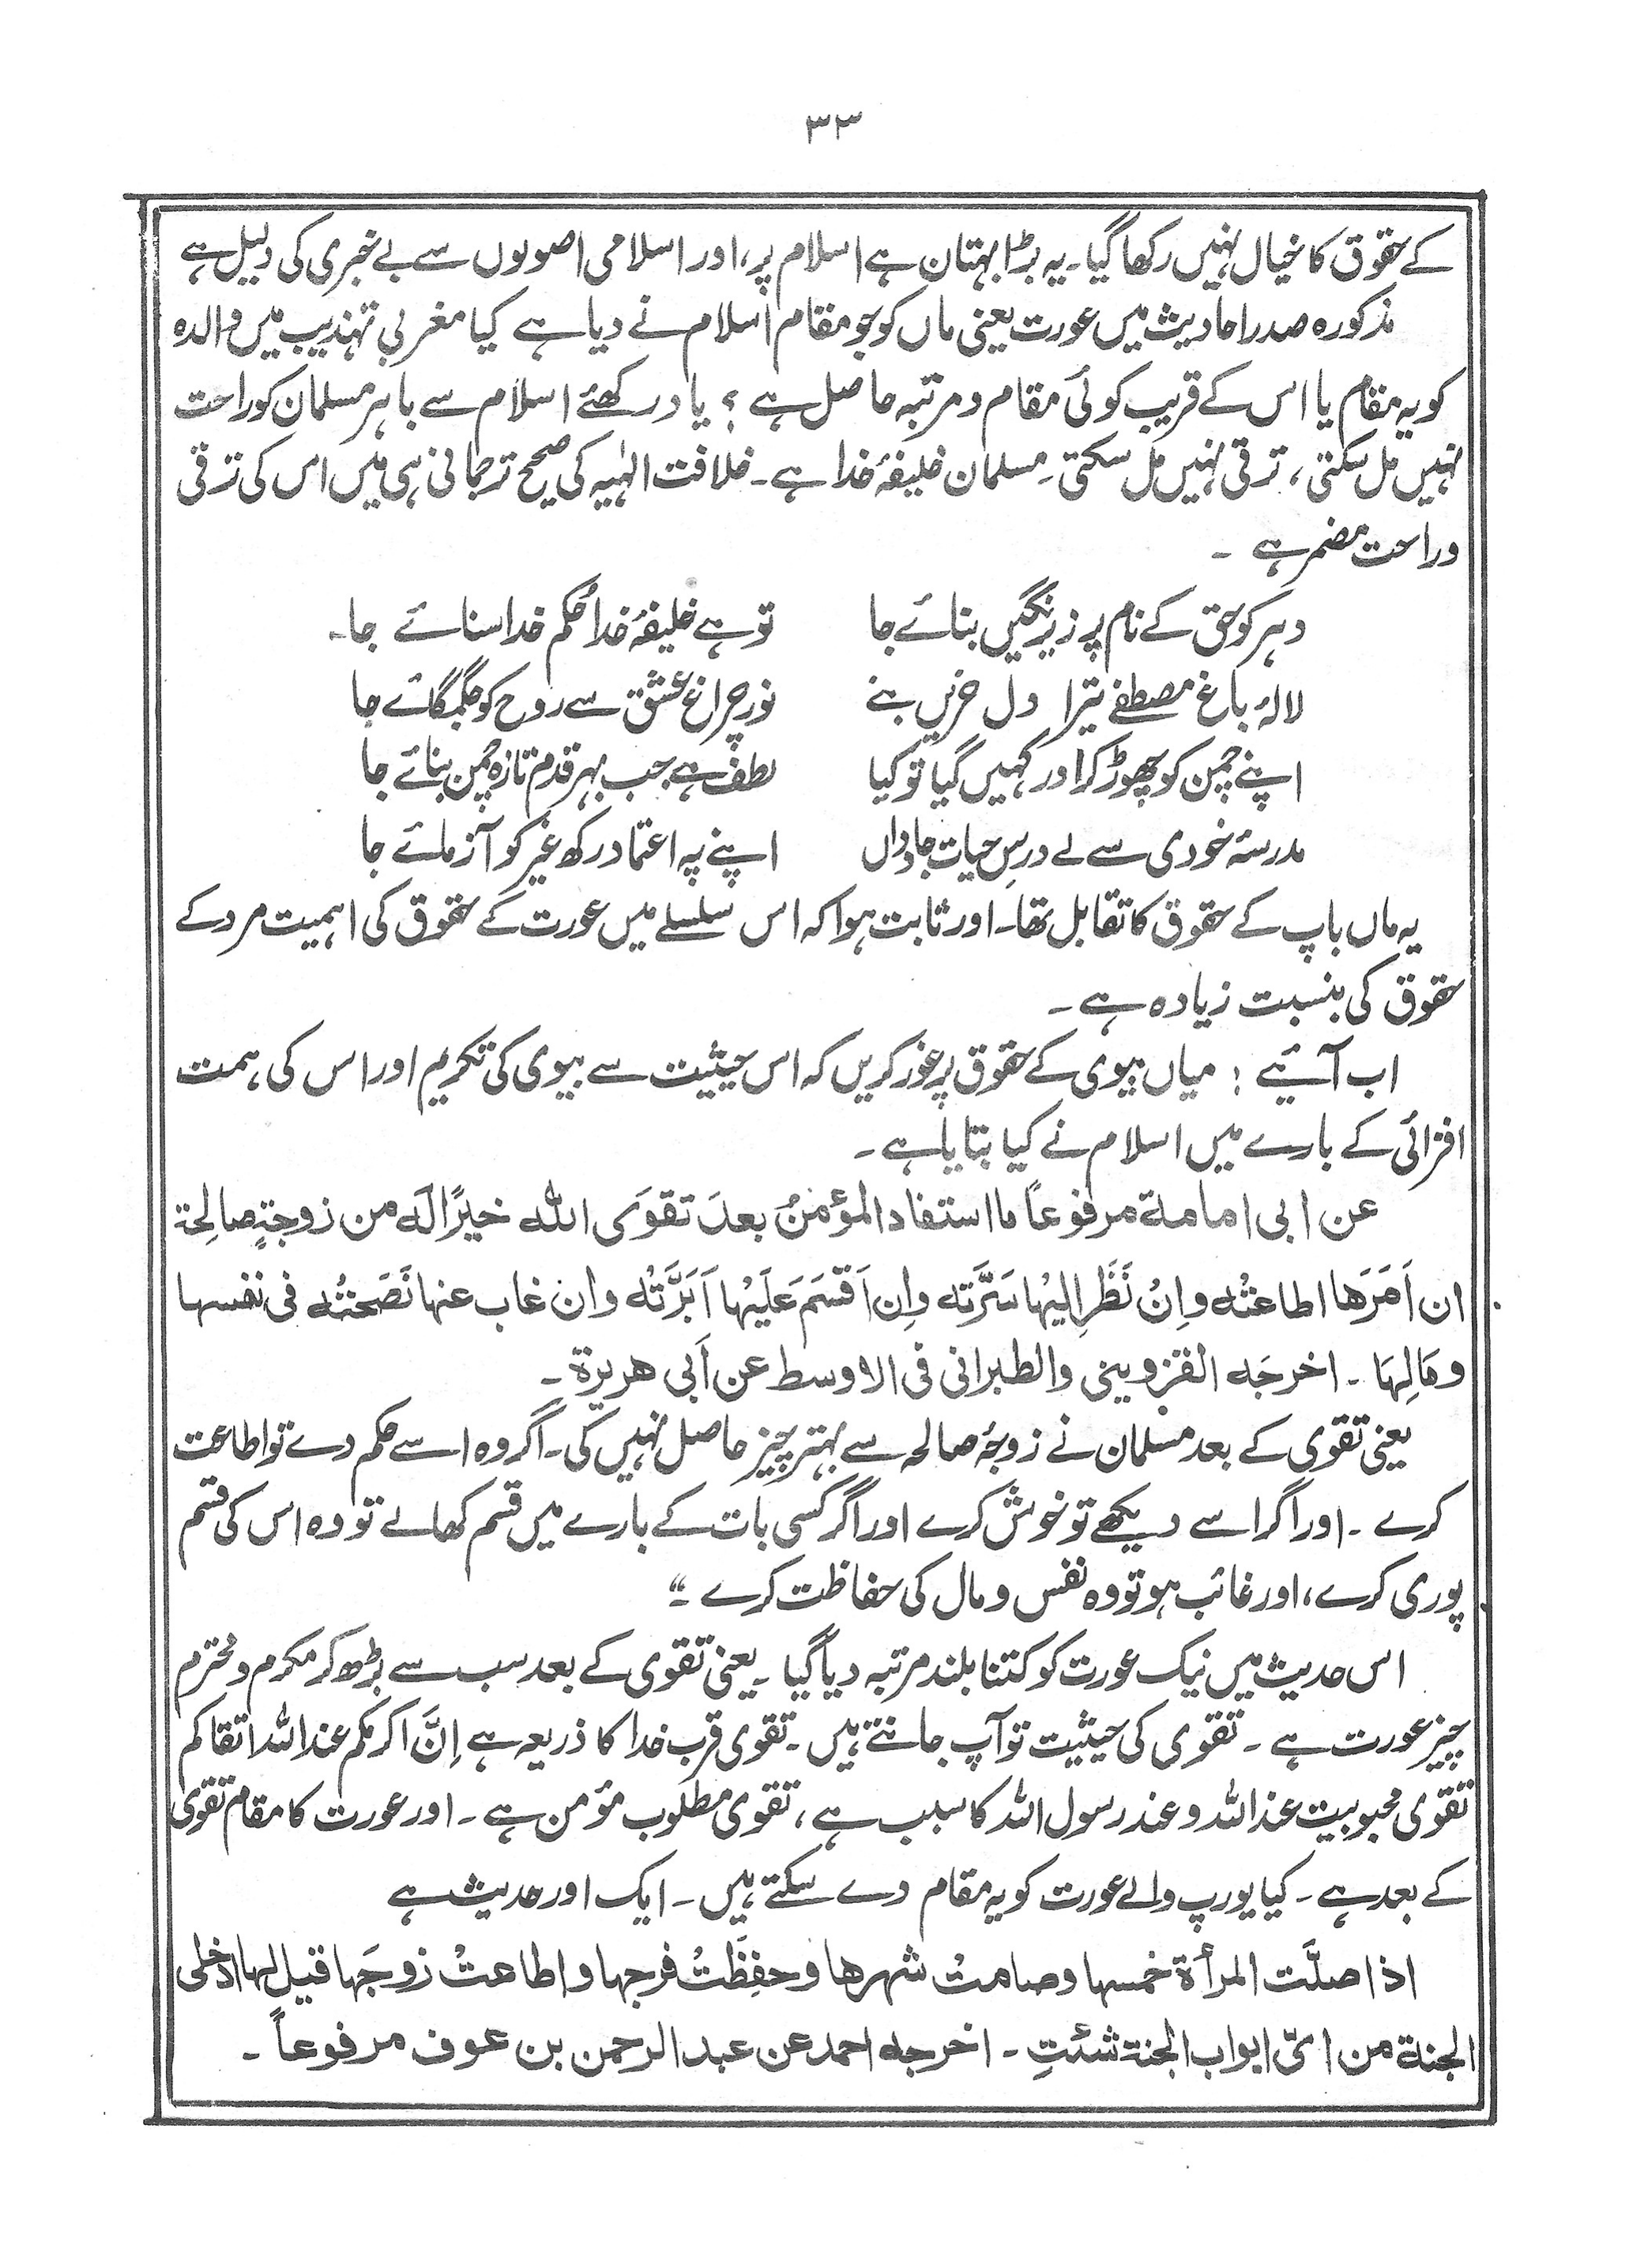 ۳۳
کے حقوق کا خیال نہیں رکھا گیا۔ یہ بڑا بہتان ہے اسلام پر، اور اسلامی اصولوں سے بے خبری کی دلیل ہے
مذکورہ صدر احادیث میں عورت یعنی ماں کو جو مقام اسلام نے دیا ہے کیا مغربی تہذیب میں والدہ
کو یہ مقام یا اس کے قریب کوئی مقام و مرتبہ حاصل ہے ؟ یاد رکھئے اسلام سے باہر مسلمان کو راحت
نہیں مل سکتی، ترقی نہیں مل سکتی۔ مسلمان خلیفۂ خدا ہے۔ خلافت الٰہیہ کی صحیح ترجمانی ہی میں اس کی ترقی
و راحت مضمر ہے ۔
دہر کو حق کے نام پر زیر نگیں بنائے جا تو ہے خلیفۂ خدا حکم خدا سنائے جا۔
لالۂ باغ مصطفےٰ تیرا دل حزیں بنے نور چراغ عشق سے روح کو جگمگائے جا
اپنے چمن کو چھوڑ کر اور کہیں گیا تو کیا لطف ہے جب بہر قدم تازہ چمن بنائے جا
مدرسۂ خودی سے لے درسِ حیات جاوداں اپنے پہ اعتماد رکھ غیر کو آزمائے جا
یہ ماں باپ کے حقوق کا تقابل تھا۔ اور ثابت ہوا کہ اس سلسلے میں عورت کے حقوق کی اہمیت مرد کے
حقوق کی بنسبت زیادہ ہے ۔
اب آئیے : میاں بیوی کے حقوق پر غور کریں کہ اس حیثیت سے بیوی کی تکریم اور اس کی ہمت
افزائی کے بارے میں اسلام نے کیا بتایا ہے ۔
عن ابی امامة مرفوعاً ما استفاد المؤمنُ بعدَ تقوَی اللہ خیرًا لَہ من زوجةٍ صالِحة
ان اَمَرَها اطاعتْه واِنْ نَظَرَ اِلیْها سَرَّته واِن اَقسَمَ عَلَیْها اَبَرَّتْه وان غاب عنها نَصَحتْه فی نفسها
ومَالِهَا ۔ اخرجَه القزوینی والطبرانی فی الاوسط عن اَبی هریرة ۔
یعنی تقوی کے بعد مسلمان نے زوجۂ صالحہ سے بہتر چیز حاصل نہیں کی۔ اگر وہ اسے حکم دے تو اطاعت
کرے ۔ اور اگر اسے دیکھے تو خوش کرے اور اگر کسی بات کے بارے میں قسم کھالے تو وہ اس کی قسم
پوری کرے، اور غائب ہو تو وہ نفس و مال کی حفاظت کرے ۔“
اس حدیث میں نیک عورت کو کتنا بلند مرتبہ دیا گیا ۔ یعنی تقوی کے بعد سب سے بڑھ کر مکرم و محترم
چیز عورت ہے ۔ تقوی کی حیثیت تو آپ جانتے ہیں ۔ تقوی قرب خدا کا ذریعہ ہے اِنَّ اکرمکم عند اللہ اتقاکم
تقوی محبوبیت عند اللہ و عند رسول اللہ کا سبب ہے، تقوی مطلوب مؤمن ہے ۔ اور عورت کا مقام تقوی
کے بعد ہے ۔ کیا یورپ والے عورت کو یہ مقام دے سکتے ہیں ۔ ایک اور حدیث ہے
اذا صلَّت المرأة خمسها وصامتْ شهرها وحفِظَتْ فرجها واطاعتْ زوجَها قیل لها ادخلی
الجنة من ایّ ابواب الجنة شئتِ ۔ اخرجه احمد عن عبد الرحمن بن عوف مرفوعاً ۔